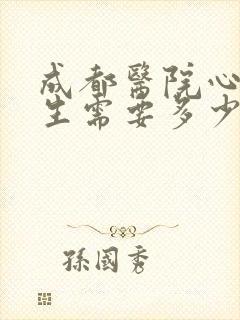 成都醫院心
生需要多少
孫國秀